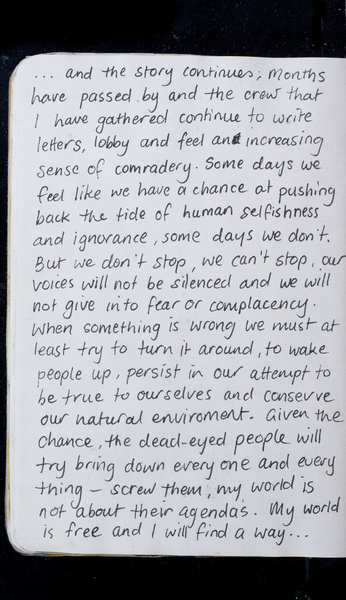 ... and the story continues; Months
have passed by and the crew that
I have gathered continue to write
letters, lobby and feel an increasing
sense of comradery. Some days we
feel like we have a chance at pushing
back the tide of human selfishness
and ignorance, some days we don't.
But we don't stop, we can't stop, our
voices will not be silenced and we will
not give in to fear or complacency.
When something is wrong we must at
least try to turn it around, to wake
people up, persist in our attempt to
be true to ourselves and conserve
our natural enviroment. Given the
chance, the dead-eyed people will
try bring down every one and every
thing – screw them, my world is
not about their agendas. My world
is free and I will find a way...